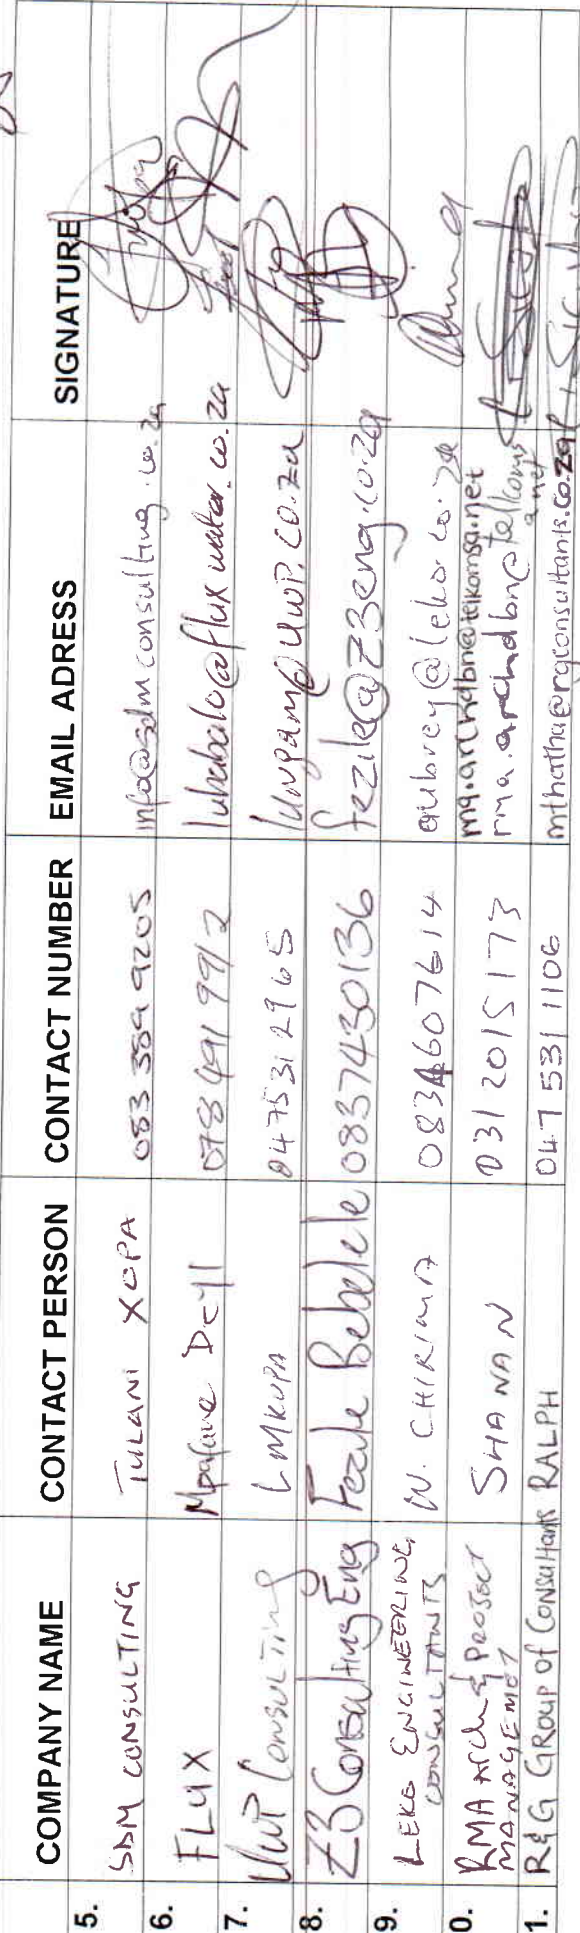 COMPANY NAME CONTACT PERSON CONTACT NUMBER EMAIL ADRESS SIGNATURE
5. SDM CONSULTING TULANI XOPA 083 389 9205 info@sdmconsulting.co.za
6. FLUX 078 491 9912 lubabalo@fluxwater.co.za
7. UWP Consulting L MKUPA 047 531 2965 lungam@uwp.co.za
8. Z3 Consulting Eng Fezile Bebelele 0837430136 fezile@z3eng.co.za
9. LEKO ENGINEERING W. CHIRIMA 0834607614 aubrey@leko.co.za
CONSULTANTS
0. RMA Arch & PROJECT SHANAN 031 2015173 mq.archdbn@telkomsa.net
MANAGEMENT rma.archdbn@telkoms
a.net
1. R&G GROUP of CONSULTANTS RALPH 047 531 1106 mthatha@rgconsultants.co.za